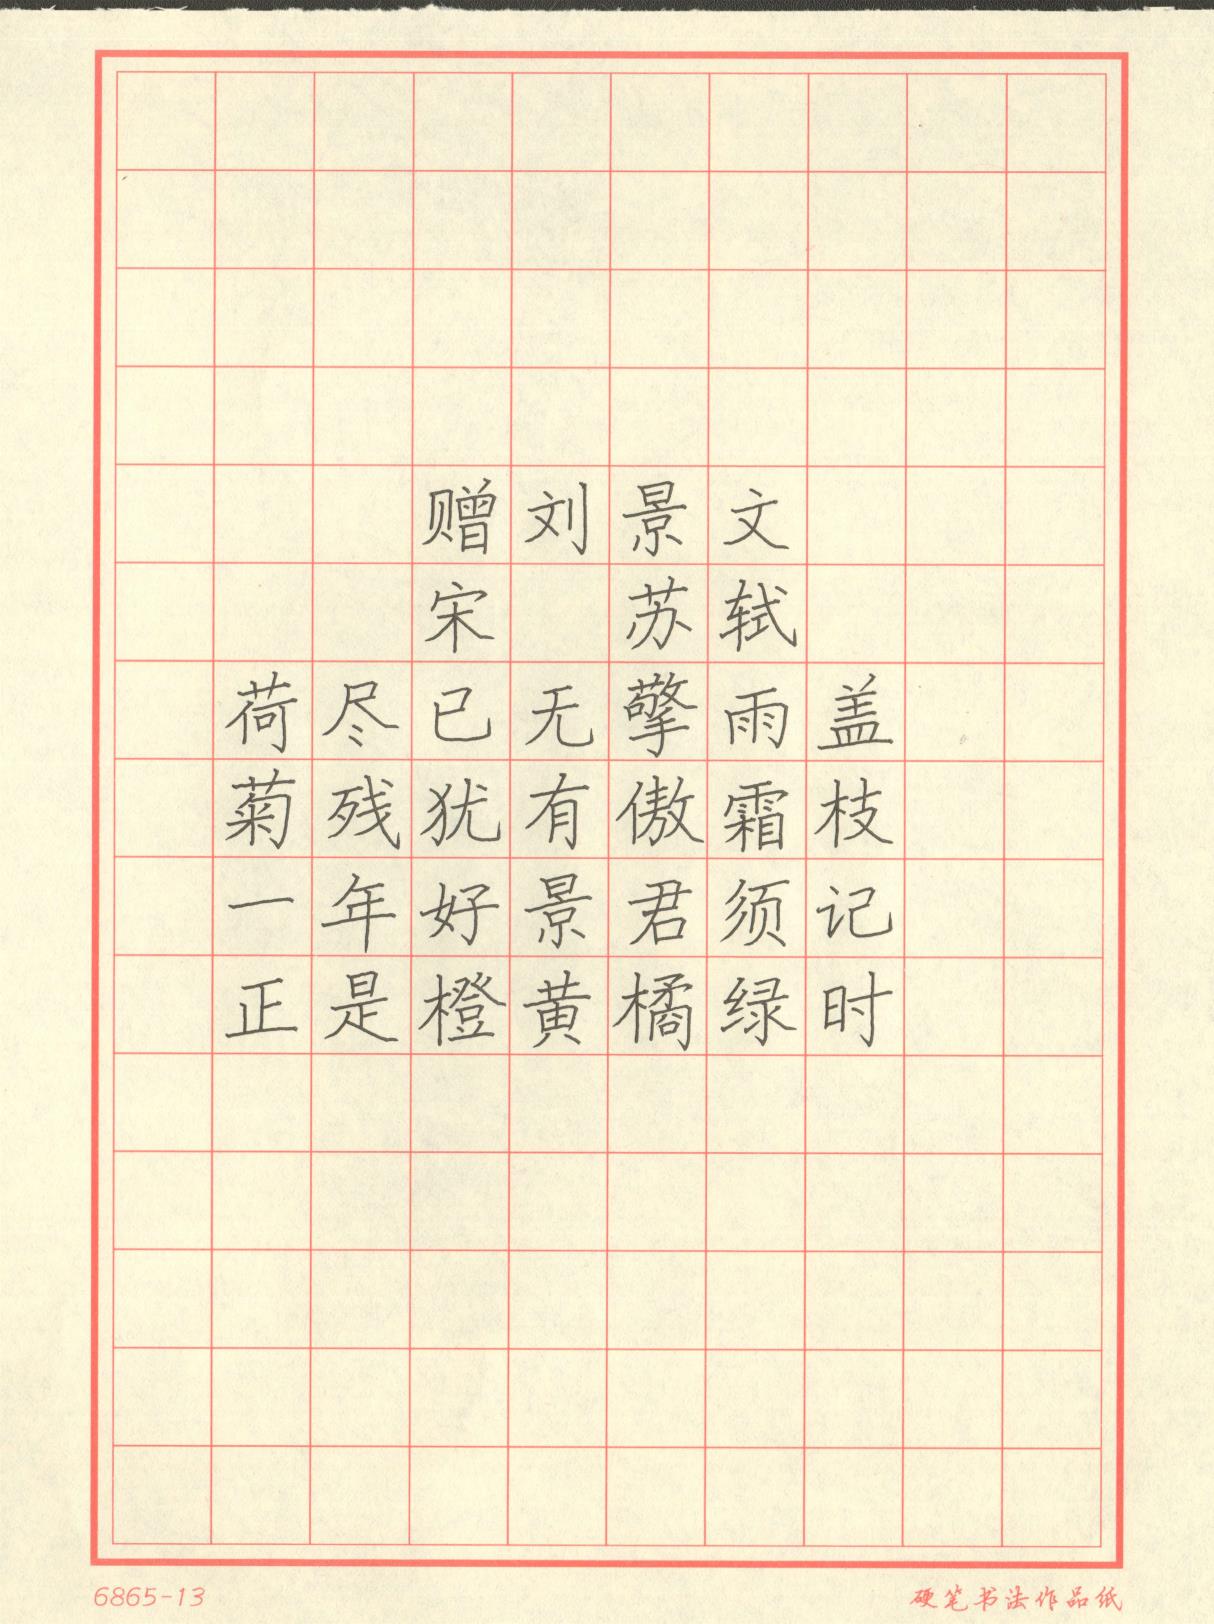 赠刘景文
宋 苏轼
荷尽已无擎雨盖
菊残犹有傲霜枝
一年好景君须记
正是橙黄橘绿时
6865-13
硬笔书法作品纸